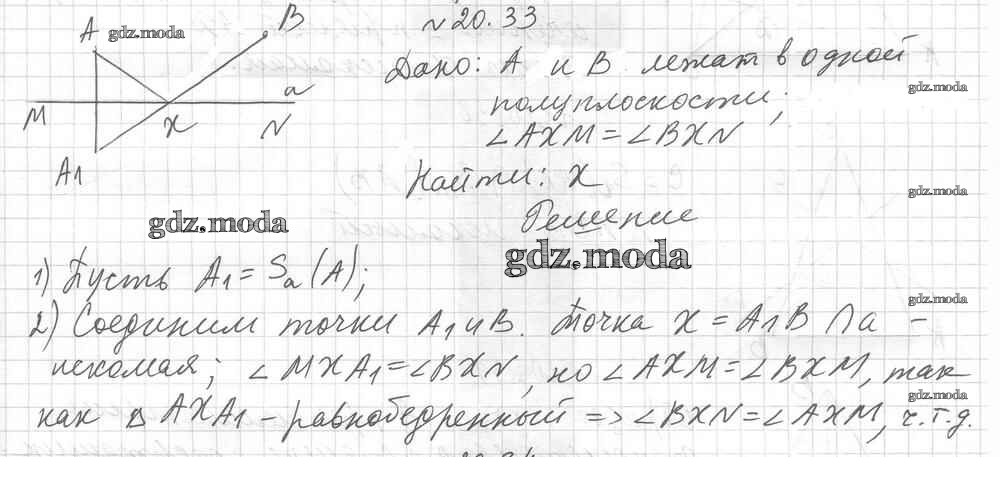 N 20.33
A gdz.moda B
M X N a
A1
Дано: A и B лежат в одной
gdz.moda
полуплоскости;
∠AXM = ∠BXN
Найти: X
gdz.moda
Решение
gdz.moda
gdz.moda
1) Пусть A1 = Sa(A);
gdz.moda
2) Соединим точки A1 и B. Точка X = A1B ∩ a –
искомая; ∠MXA1 = ∠BXN, но ∠AXM = ∠BXM, так
gdz.moda
как △AXA1 – равнобедренный => ∠BXN = ∠AXM, ч.т.д.